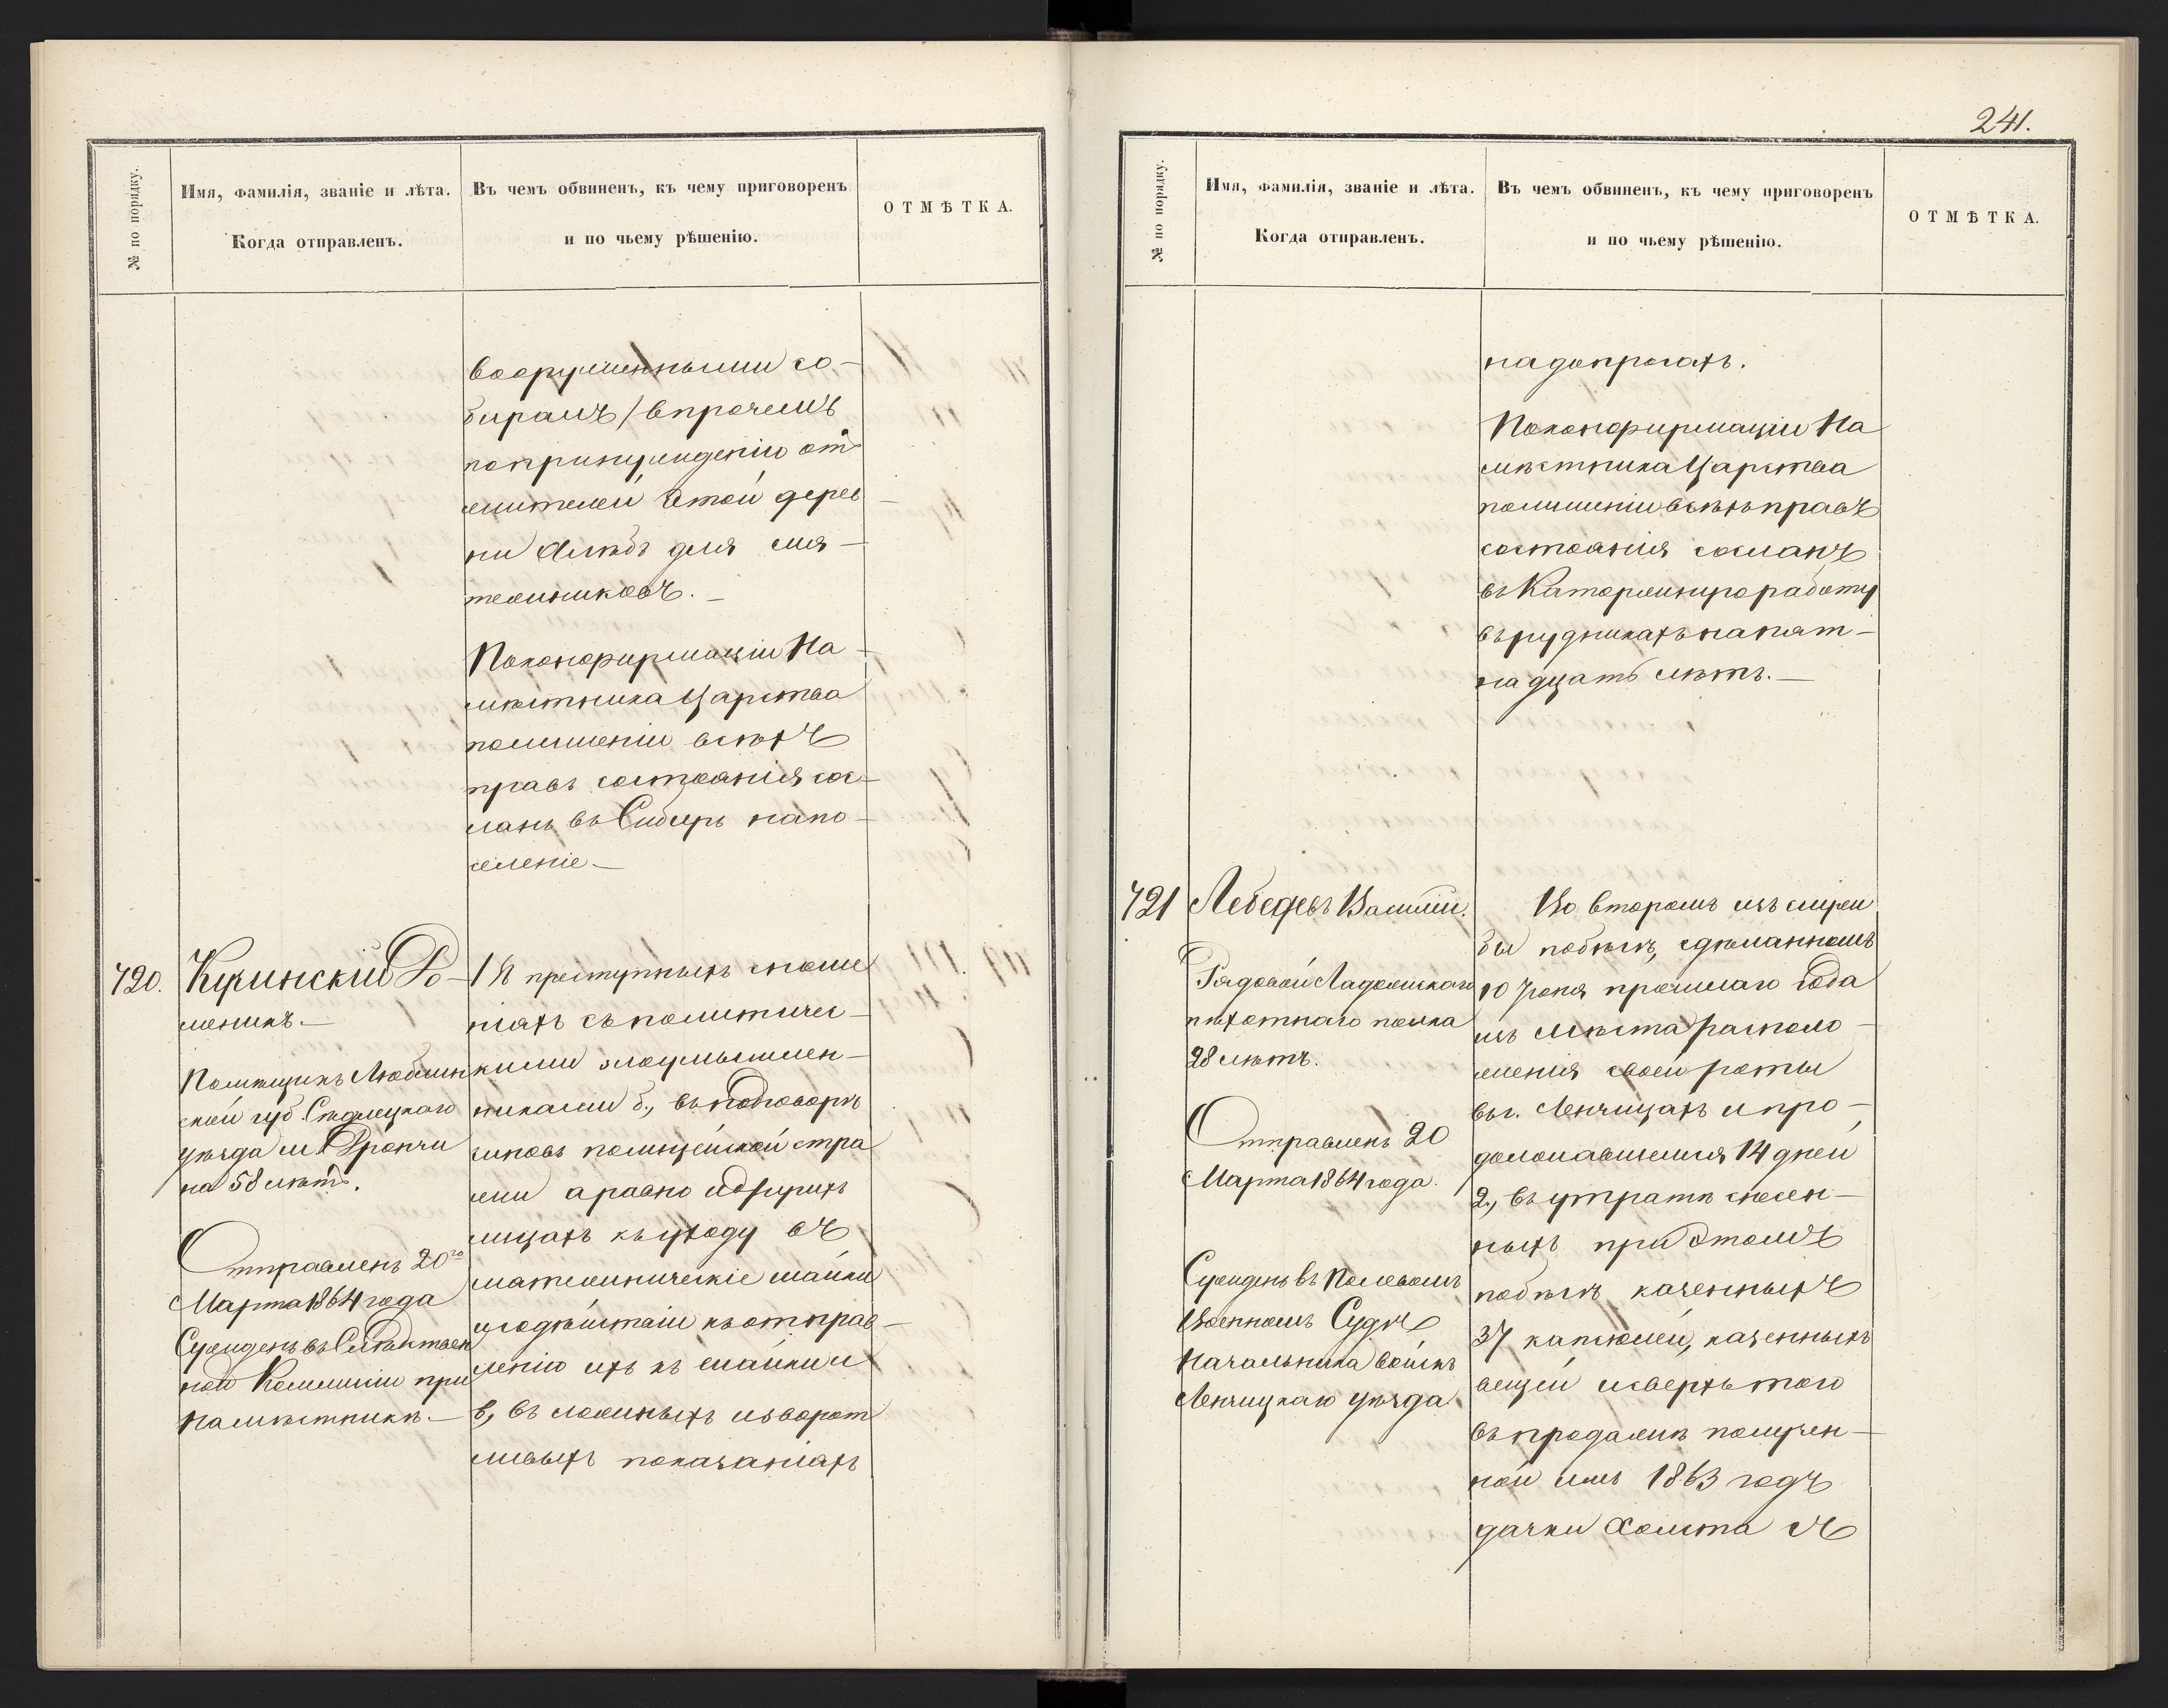 № по порядку.
Имя, фамилія, званіе и лѣта.
Когда отправленъ.
Въ чемъ обвиненъ, къ чему приговоренъ
и по чьему рѣшенію.
ОТМѢТКА.
вооруженными со-
бирамъ / впрочемъ
попринужденію отъ
жителей этой дерев
ни хлѣбъ для мя-
тежниковъ.-
Поконфирмаціи На
мѣстника Царства
полишеніи всѣхъ
правъ состоянія сос-
ланъ въ Сибирь напо-
селеніе-
720.
Кушинскій До-
меникъ.-
Помѣщикъ Люблин
ской губ. Сѣдлецкаго
уѣзда им
на 58 лѣтъ.
Отправленъ 20го
Марта 1864 года
Сужденъ въ Слѣдствен
ной Коммисіи при
Намѣстникѣ.-
1 В преступныхъ сноше
ніяхъ съ политичес-
кими злоумышлен-
никами б., въ подговорѣ
чиновъ полицейской стра
жи а равно и другихъ
лицахъ къ уходу въ
мятежническіе шайки
и содѣйствіи къ отправ-
ленію ихъ къ шайки и
в, въ ложныхъ изворот
ливыхъ показаніяхъ
241.
№ по порядку.
Имя, фамилія, званіе и лѣта.
Когда отправленъ.
Въ чемъ обвиненъ, къ чему приговоренъ
и по чьему рѣшенію.
ОТМѢТКА.
надопросахъ.
Поконфирмаціи На
мѣстника Царства
полишеніи всѣхъ правъ
состоянія сосланъ
въ Каторжную работу
въ рудникахъ напят-
надцать лѣтъ.-
721
Лебедевъ Василій.
Рядовой Ладожскаго
пѣхотнаго полка
28 лѣтъ.
Отправленъ 20
Марта 1864 года.
Сужденъ въ Полевомъ
Военномъ Судѣ
Начальника войскъ
Ленчицкаго уѣзда
Во второмъ изъ служ
бы побѣгѣ, сдѣланномъ
10 Іюня прошлаго года
изъ мѣста располо-
женія своей роты
въ г. Ленчицахъ и про-
должавшемся 14 дней
2., въ утратѣ снесен-
ныхъ при этомъ
побѣгѣ казенныхъ
37 капсюлей, казенныхъ
вещей и сверхъ того
въ продажѣ получен-
ной имъ 1863 годъ
дачки холста съ